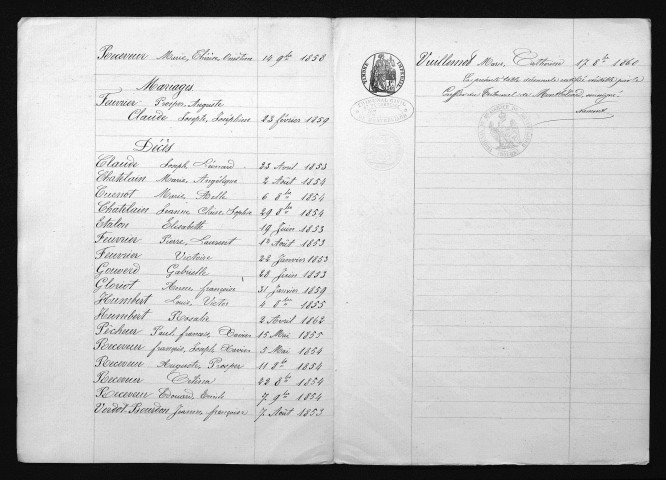 Receveur Marie, Thérèse 14 9bre 1858
Mariages
Feuvrier Prosper, Auguste
Claude Joseph, Joséphine 23 février 1859
Décès
Claude Joseph Léonard 23 Avril 1853
Chatelain Marie Angélique 2 Août 1854
Cuenot Marie 6 8bre 1854
Chatelain Jeanne Claire Sophie 29 8bre 1854
Etalon Elisabeth 19 Juin 1853
Feuvrier Pierre, Laurent 1er Août 1853
Feuvrier Victoire 22 Janvier 1853
Gouverd Gabrielle 28 Juin 1853
Gloriot françoise 31 Janvier 1859
Humbert Louis, Victor 4 8bre 1855
Humbert Rosalie 2 Avril 1862
Pécheur Paul, françois, Xavier 15 Mai 1855
Receveur françois, Joseph, Xavier 5 Mai 1854
Receveur Auguste, Prosper 11 8bre 1854
Receveur 22 8bre 1854
Receveur Edouard, Emile 7 9bre 1854
Verdot-Bourdon Jeanne, françoise 7 Août 1853
TIMBRE IMPÉRIAL
Vuillemot Marie, Catherine 17 8bre 1860
La présente table décennale certifiée véritable par le
Greffier du Tribunal de Montbéliard, soussigné